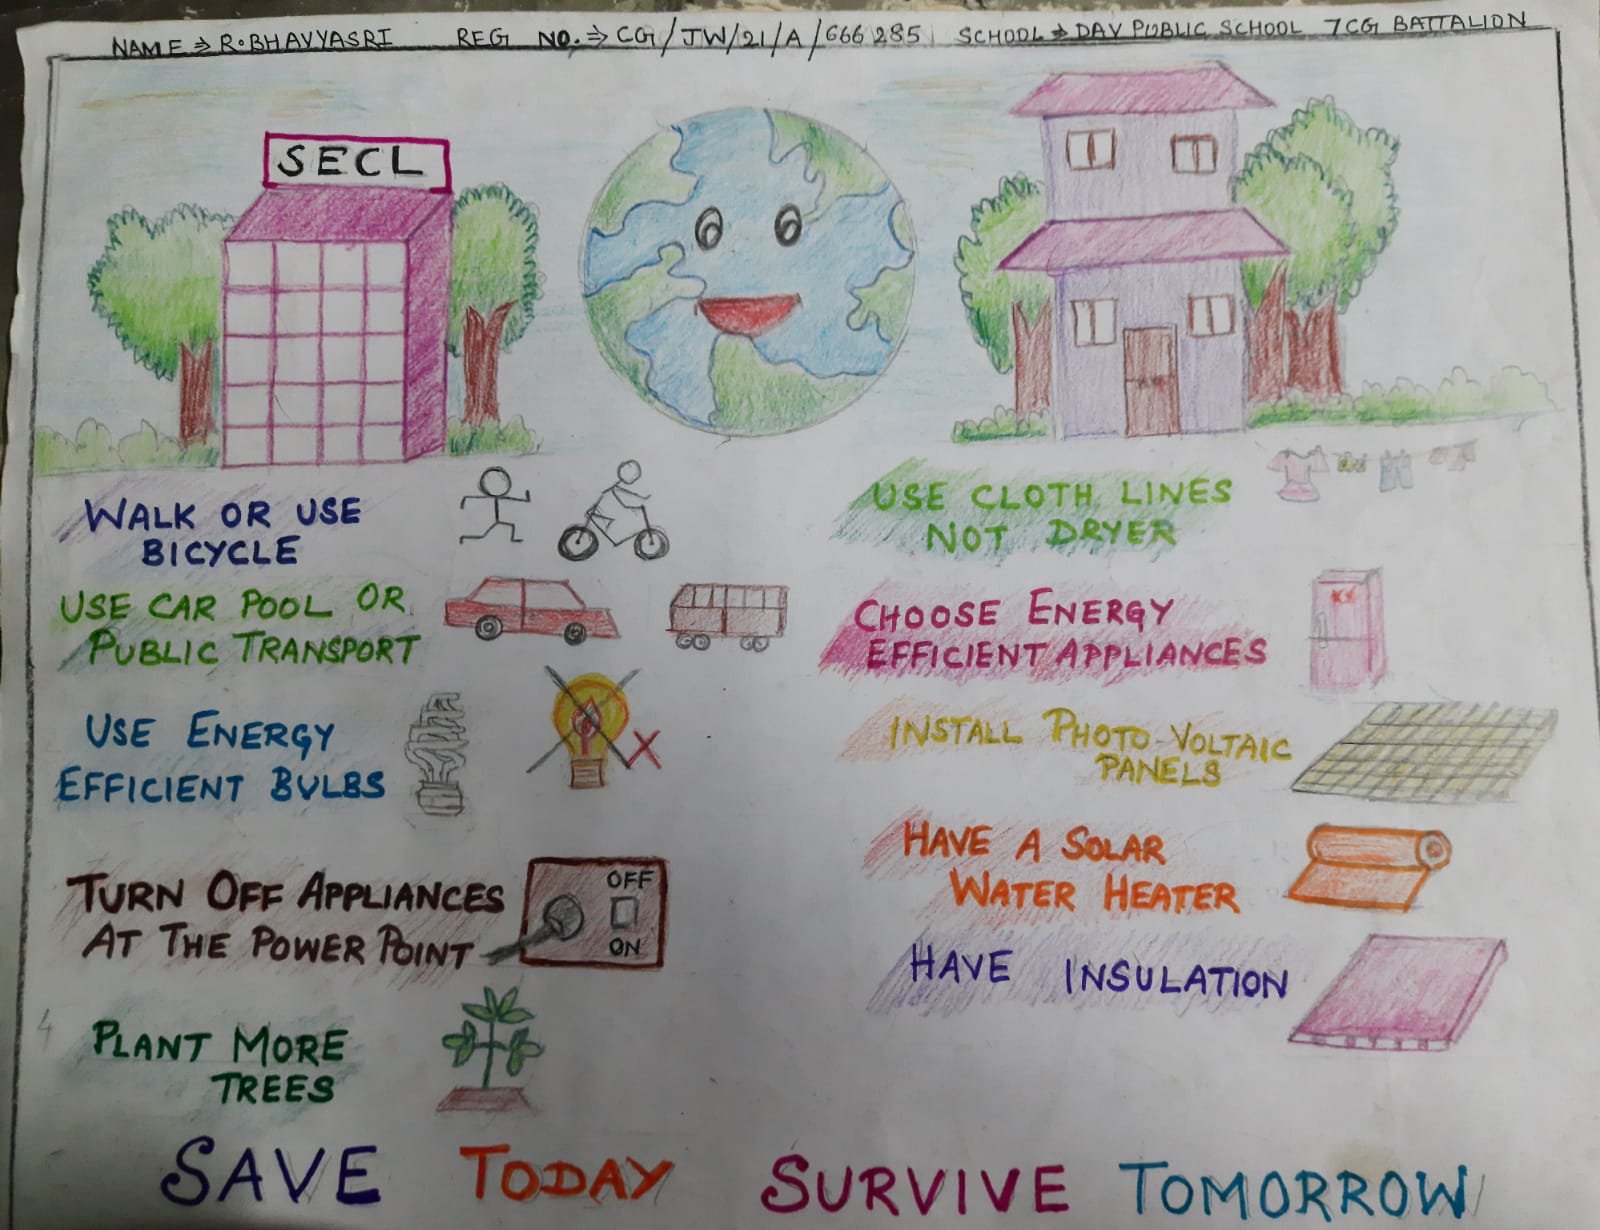 NAME ⇒ R. BHAVYASRI REG NO. ⇒ CG/JW/21/A/666285 SCHOOL ⇒ DAV PUBLIC SCHOOL 7CG BATTALION
SECL
WALK OR USE
BICYCLE
USE CAR POOL OR
PUBLIC TRANSPORT
USE ENERGY
EFFICIENT BULBS
X
TURN OFF APPLIANCES
AT THE POWER POINT
OFF
ON
PLANT MORE
TREES
USE CLOTH LINES
NOT DRYER
CHOOSE ENERGY
EFFICIENT APPLIANCES
INSTALL PHOTO-VOLTAIC
PANELS
HAVE A SOLAR
WATER HEATER
HAVE INSULATION
4
SAVE TODAY SURVIVE TOMORROW